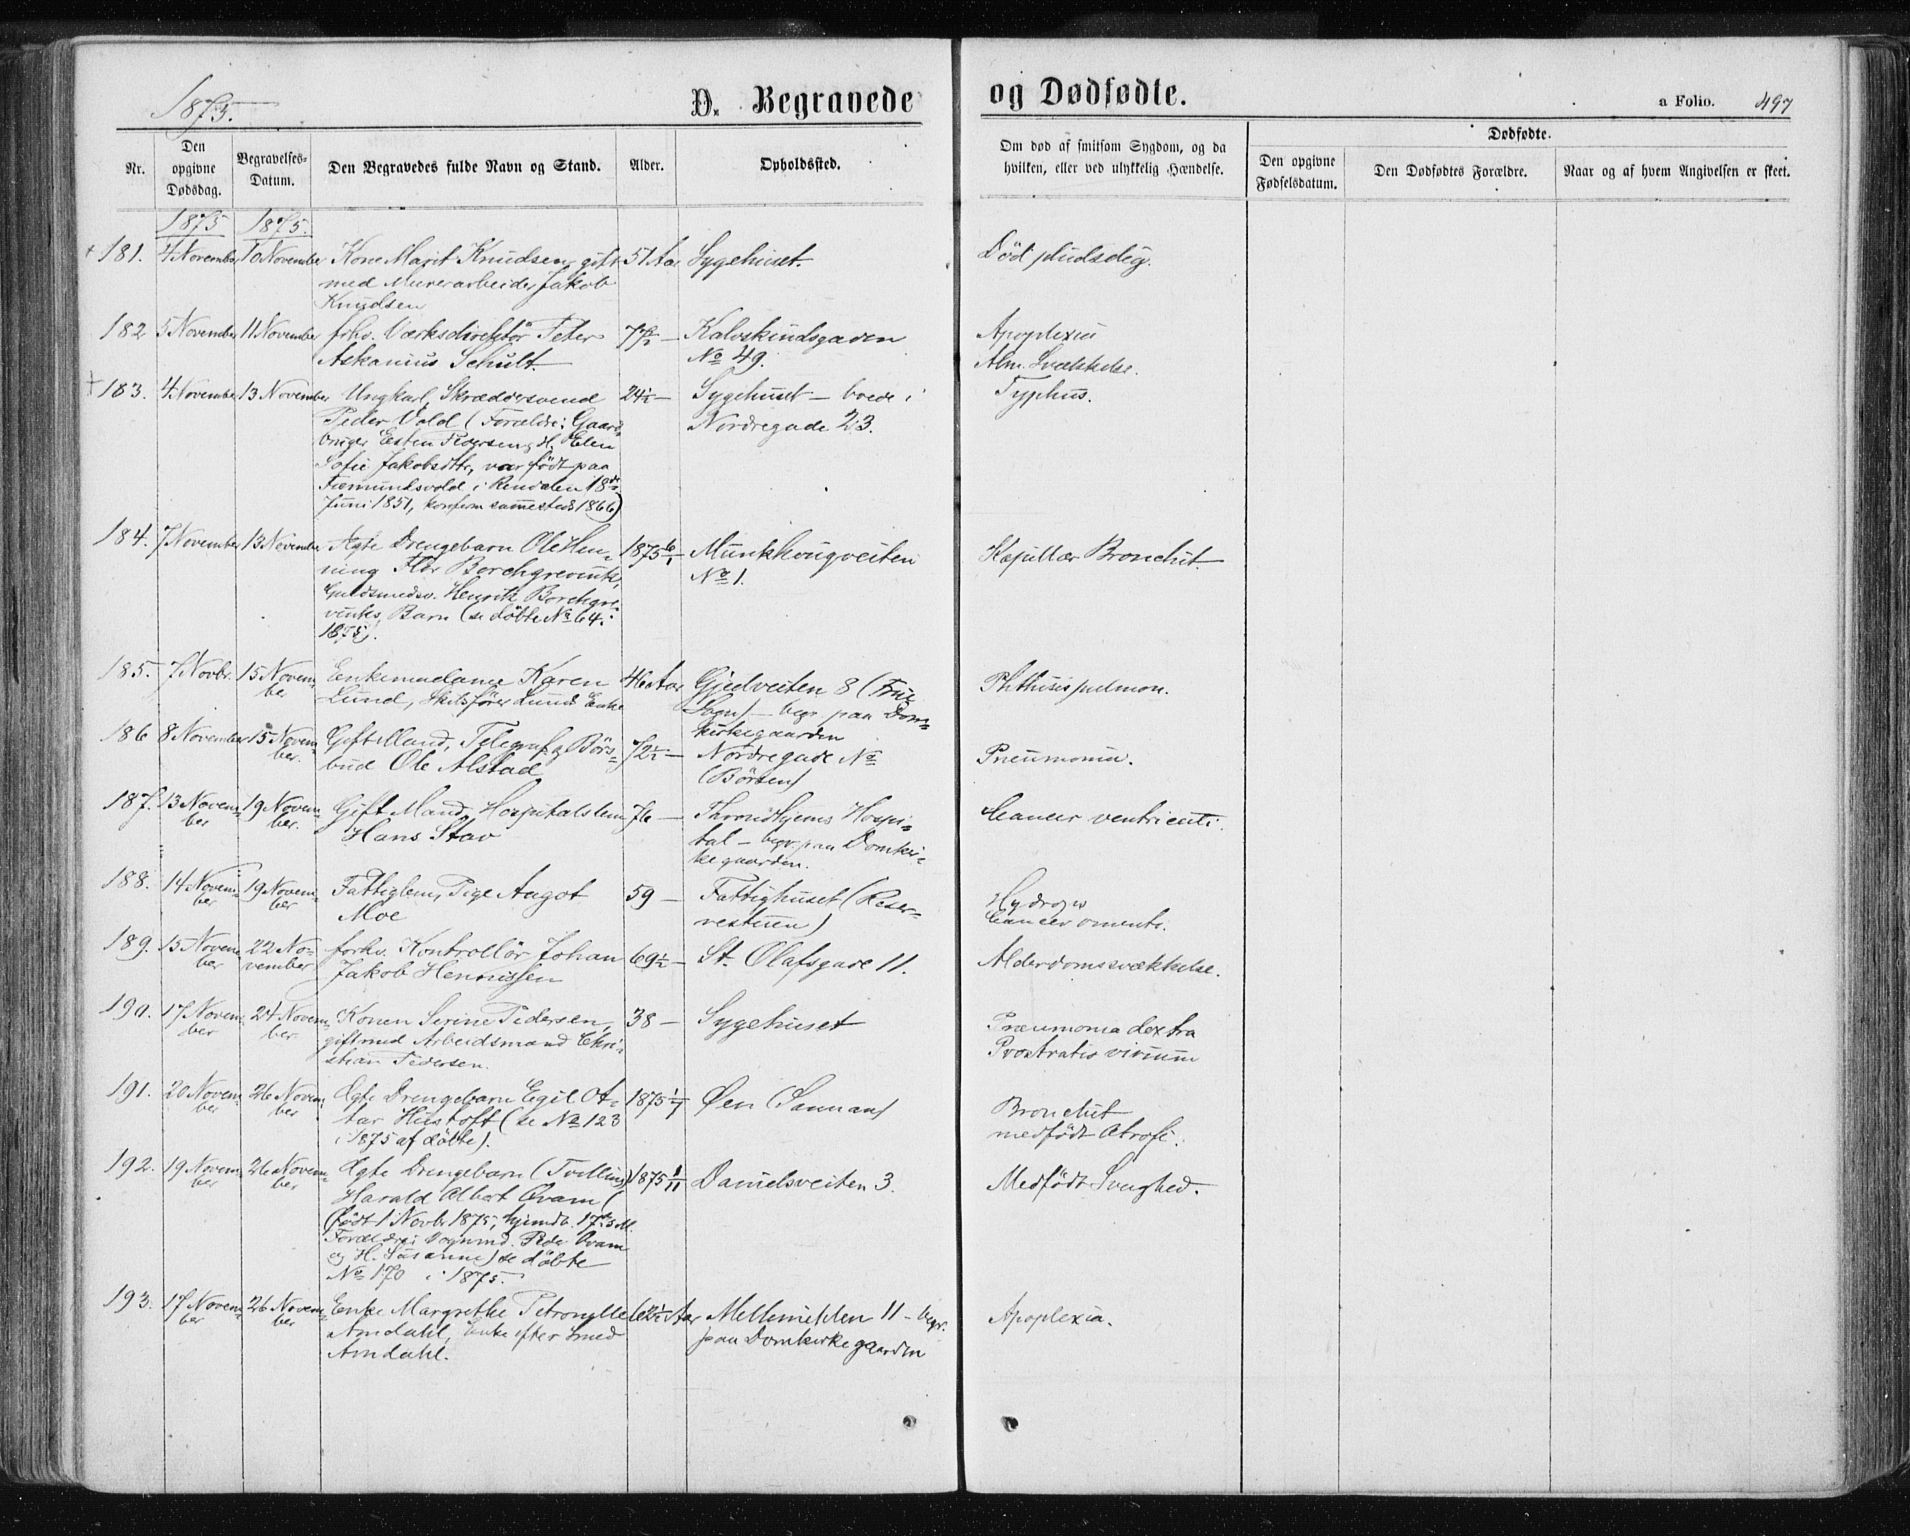 1875.
D. Begravede
og Dødfødte.
a Folio. 497
Nr.
Den opgivne Dødsdag.
Begravelses-Datum.
Den Begravedes fulde Navn og Stand.
Alder.
Opholdssted.
Om død af smitsom Sygdom, og da hvilken, eller ved ulykkelig Hændelse.
Dødfødte.
Den opgivne Fødselsdatum.
Den Dødfødtes Forældre.
Naar og af hvem Angivelsen er skeet.
1875 1875.
+ 181. 4 November 10 November Kone Marit Knudsen, gift 51 Aar Sygehuset. Död pludselig.
med Murerarbeider Jakob
Knudsen
182 5 November 11 November fhv. Værksdirektör Peter Kalvskindsgaden Apoplexia
Askanius Schult. No 49. Alm. Svækkelse.
+ 183. 4 November 13 November Ungkarl, Skræddersvend 24½ — Sygehuset — boede i Typhus.
Peder Vold (Forældre: Gaard- Nordregade 23.
bruger Esten Pedersen og H. Elen
Sofie Jakobsdtr, var födt paa
Fæmundsvold i Rendalen 18de
Juni 1851, konfirm sammesteds 1866)
184. 7 November 13 November Ægte Drengebarn Ole Hen- 1875 6/1 Munkhougveiten Kapillær Bronchit.
ning Flor Borchgrevink, No 1.
Guldsmedsv. Henrik Borchgre-
vinks Barn (se döbte No 64.
1875).
185. 7 Novbr. 15 Novem- Enkemadame Karen 46 Aar Gjedveiten 8 (Frue Phthisis pulmon.
be Lund, Skibsförer Lunds Enke Sogn) — begr paa Dom-
kirkegaarden
186 8 November 15 Novem- Gift Mand, Telegraf og Börs- 72½ — Nordregade No Pneumonia.
ber. bud Ole Alstad (Börsen)
187. 13 Novem- 19 Novem- Gift Mand, Hospitalslem 76 — Throndhjems Hospi- Cancer ventriculi.
ber ber. Hans Stav tal — begr. paa Domkir-
kegaarden.
188. 14 Novem- 19 Novem- Fattiglem, Pige Aagot 59 — Fattighuset (Reser- Hydrops
ber ber Moe vestuen) Cancer omenti.
189. 15 Novem- 22 No- forhv. Kontrollör Johan 69½ — St. Olafsgade 11. Alderdomssvækkelse.
ber vember Jakob Hennissen
190. 17 Novem- 24 Novem- Konen Serine Pedersen, 38 — Sygehuset Pneumonia dextra
ber ber. gift med Arbeidsmand Chri- Prostratio virium
stian Pedersen.
191. 20 Novem- 26 Novem- Ægte Drengebarn Egil Ot- 1875 1/7 Øen (Sannan) Bronchit
ber ber tar Hustoft (se No 123 medfödt Atrofi.
i 1875 af döbte).
192. 19 Novem- 26 Novem- Ægte Drengebarn (Tvilling) 1875 1/11 Danielsveiten 3. Medfödt Svaghed.
ber ber Harald Albert Qvam (
(födt 1 Novbr 1875, hjemdb. 17de s. M.
Forældre: Vognmd. Peder Qvam
og H. Susanne) se döbte
No 170 i 1875.
193. 17 Novem- 26 Novem- Enke Margrethe Petronelle 62½ Aar Mellemilden 11 — begr. Apoplexia.
ber ber Amdahl, Enke efter Smed paa Domkirkegaarden
Amdahl.